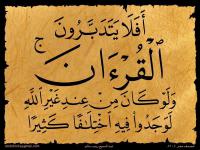 أَفَلَا يَتَدَبَّرُونَ
الْقُرْءَانَ ۚ
وَلَوْ كَانَ مِنْ عِندِ غَيْرِ اللَّهِ
لَوَجَدُوا۟ فِيهِ اخْتِلَٰفًا كَثِيرًا